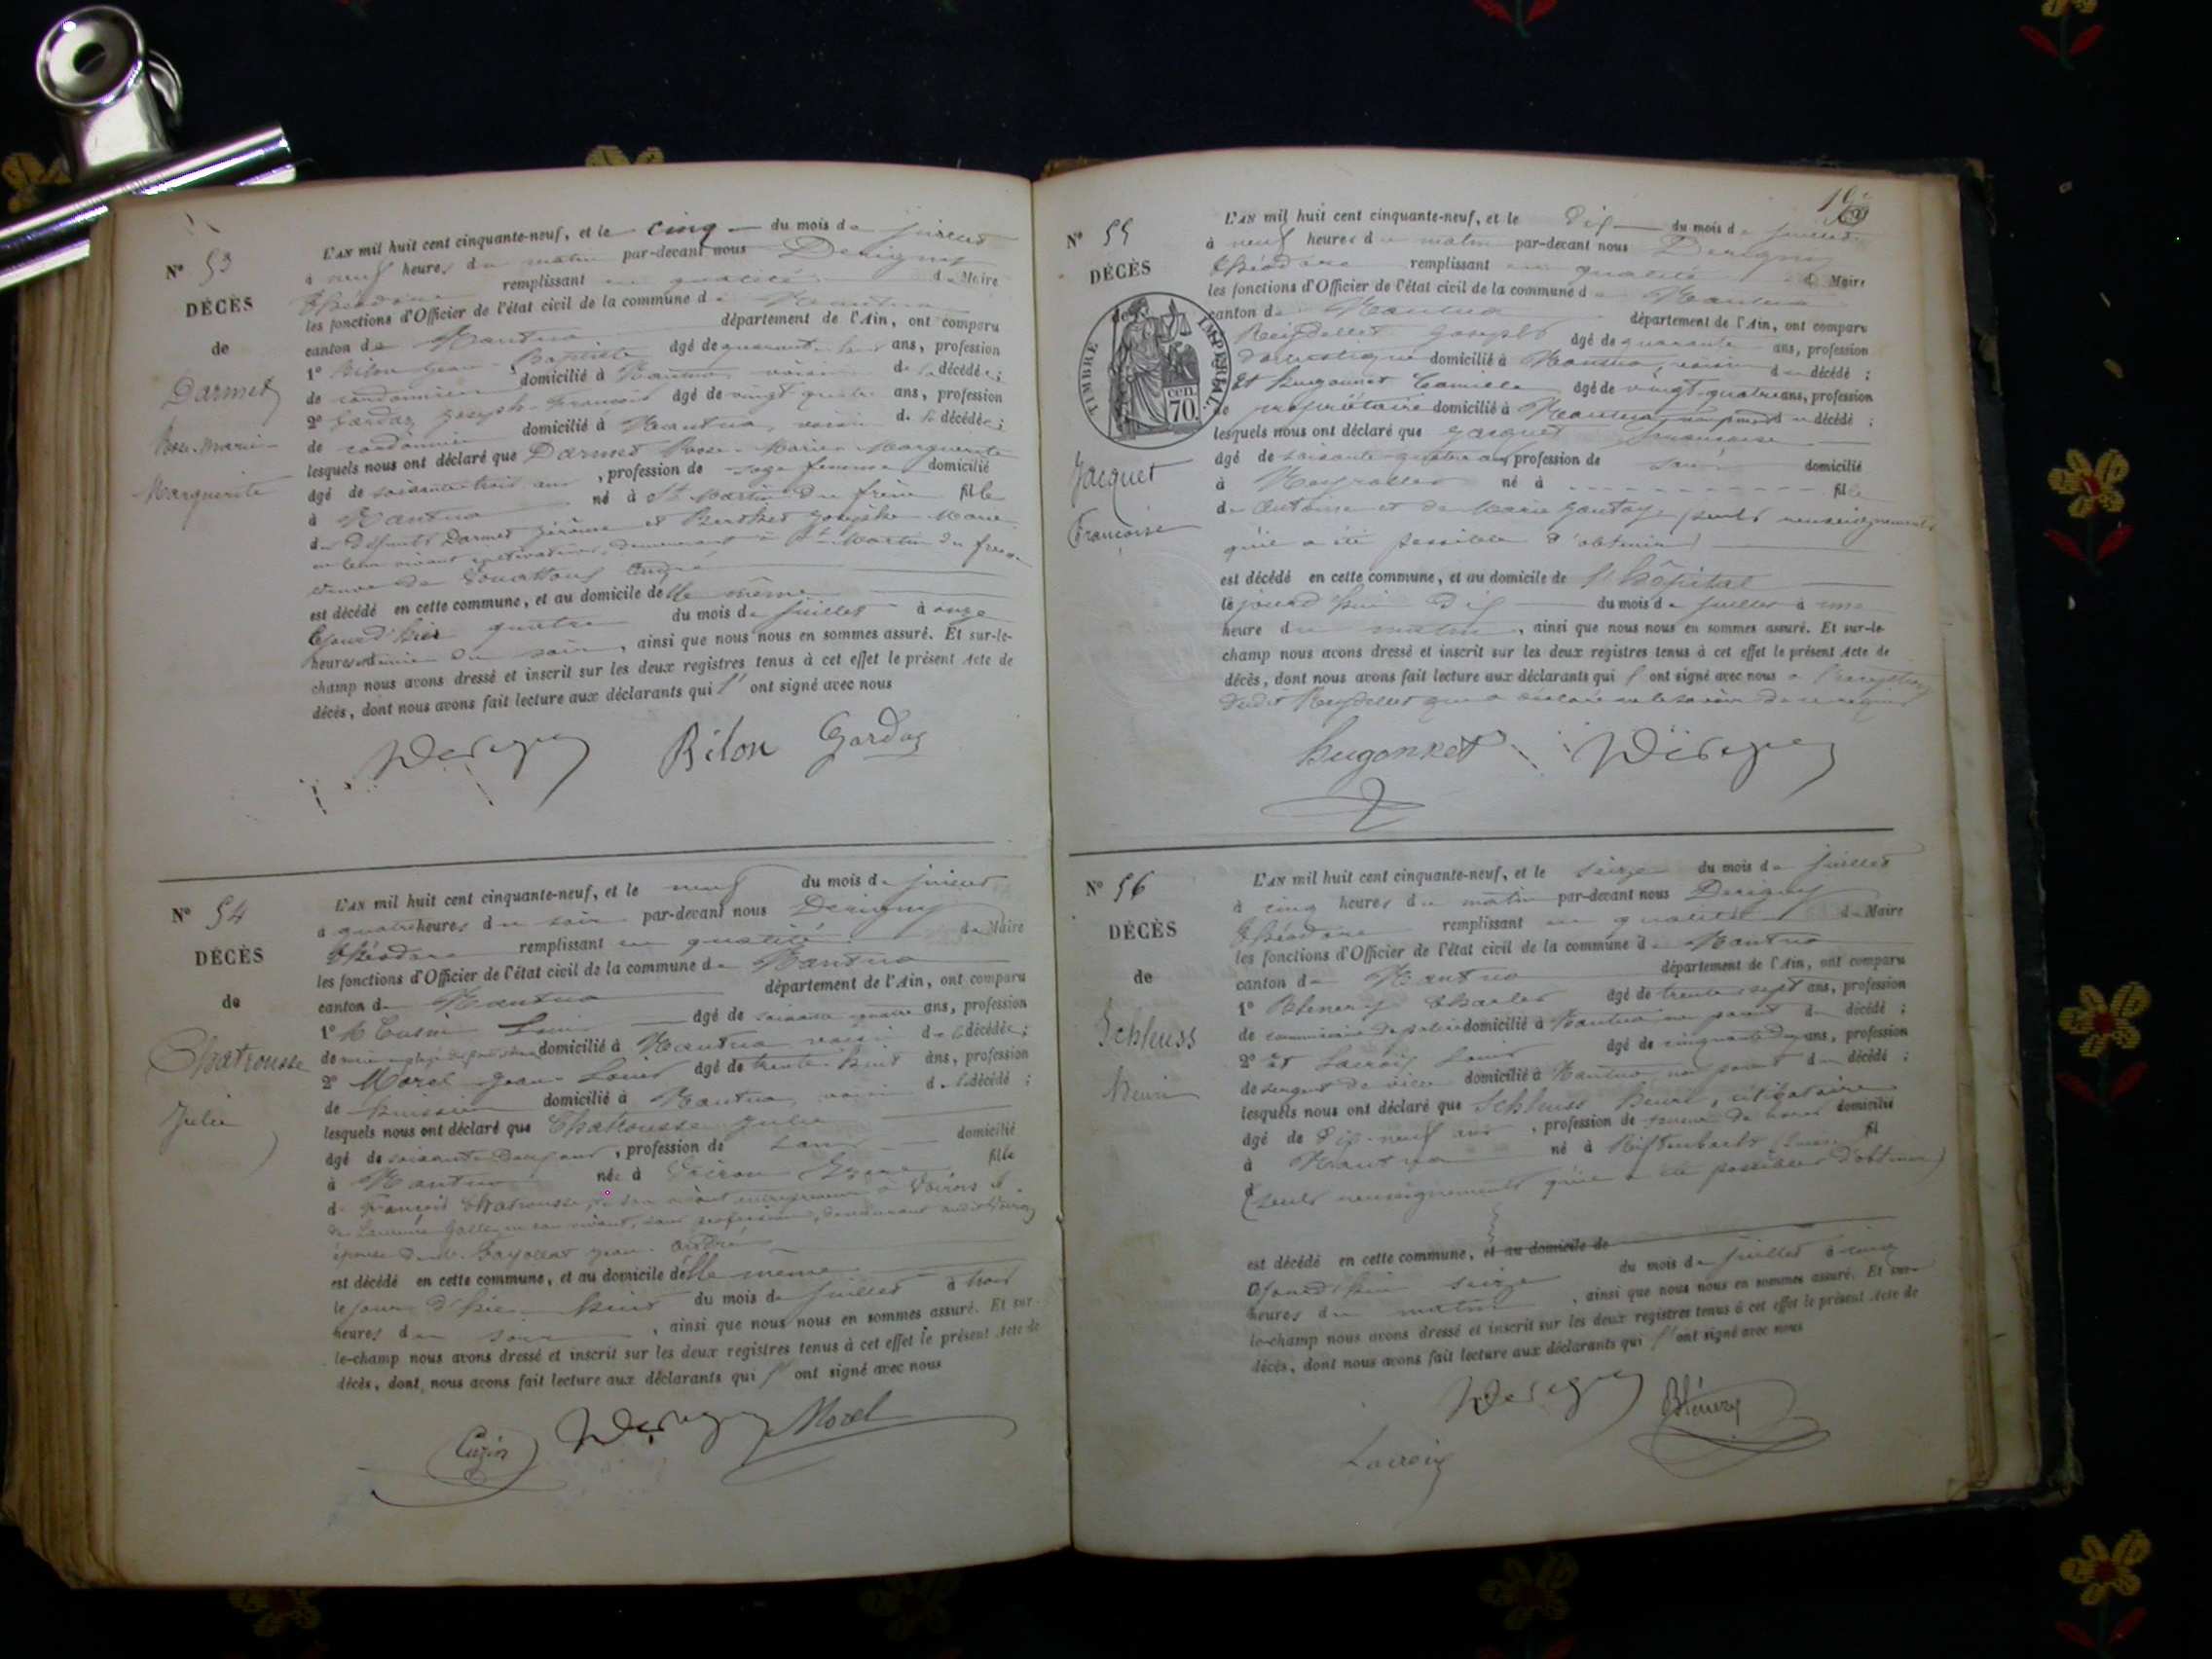 N° 53
DÉCÈS
de
Darmet
Rose-Marie-
Marguerite
L'AN mil huit cent cinquante-neuf, et le cinq du mois de juillet
à neuf heures du matin par-devant nous Derigny
Théodore remplissant en qualité de Maire
les fonctions d'Officier de l'état civil de la commune de Nantua
canton de Nantua département de l'Ain, ont comparu
1° Bilon Jean-Baptiste âgé de quarante ans, profession
de cordonnier domicilié à Nantua, voisin de la décédée;
2° Gardaz Joseph-François âgé de vingt quatre ans, profession
de cordonnier domicilié à Nantua, voisin de la décédée;
lesquels nous ont déclaré que Darmet Rose-Marie-Marguerite
âgé de soixante trois ans, profession de sage femme domicilié
à Nantua né à St Martin du frêne fille
de défunts Darmet Jérôme et Berthet Josephe Marie
en leur vivant cultivateurs, demeurant à St Martin du frêne
veuve de
est décédé en cette commune, et au domicile d'elle même
le jour d'hier quatre du mois de juillet à onze
heures et demie du soir, ainsi que nous nous en sommes assuré. Et sur-le-
champ nous avons dressé et inscrit sur les deux registres tenus à cet effet le présent Acte de
décès, dont nous avons fait lecture aux déclarants qui l' ont signé avec nous
Derigny Bilon Gardaz
N° 54
DÉCÈS
de
Chatrousse
Julie
L'AN mil huit cent cinquante-neuf, et le neuf du mois de juillet
à quatre heures du soir par-devant nous Derigny
Théodore remplissant en qualité de Maire
les fonctions d'Officier de l'état civil de la commune de Nantua
canton de Nantua département de l'Ain, ont comparu
1° Louis âgé de soixante quatre ans, profession
de domicilié à Nantua voisin de la décédée;
2° Morel Jean-Louis âgé de trente-huit ans, profession
de huissier domicilié à Nantua, voisin de la décédé;
lesquels nous ont déclaré que Chatrousse Julie
âgé de soixante-deux ans, profession de sans domicilié
à Nantua née à Voiron Isère fille
de François Chatrousse, en son vivant entrepreneur à Voiron et
de Laurence en son vivant, sans profession, demeurant audit Voiron
épouse de Jean-André
est décédé en cette commune, et au domicile d'elle même
le jour d'hier huit du mois de juillet à trois
heures du soir, ainsi que nous nous en sommes assuré. Et sur-
le-champ nous avons dressé et inscrit sur les deux registres tenus à cet effet le présent Acte de
décès, dont nous avons fait lecture aux déclarants qui l' ont signé avec nous
Cuzin Derigny Morel
N° 55
DÉCÈS
de
TIMBRE IMPÉRIAL.
cen.
70.
Jacquet
Françoise
L'AN mil huit cent cinquante-neuf, et le dix du mois de juillet
à neuf heures du matin par-devant nous Derigny
Théodore remplissant en qualité de Maire
les fonctions d'Officier de l'état civil de la commune de Nantua
canton de Nantua département de l'Ain, ont comparu
Reydellet Joseph âgé de quarante ans, profession
domestique domicilié à Nantua, voisin du décédé;
Et Hugonnet Camille âgé de vingt-quatre ans, profession
de propriétaire domicilié à Nantua, décédé;
lesquels nous ont déclaré que Jacquet Françoise
âgé de soixante-quatre ans profession de sans domicilié
à Meyrolles né à fille
de Antoine et de Marie (seuls renseignements
qu'il a été possible d'obtenir)
est décédé en cette commune, et au domicile de l'hôpital
le jourd'hui dix du mois de juillet à une
heure du matin, ainsi que nous nous en sommes assuré. Et sur-le-
champ nous avons dressé et inscrit sur les deux registres tenus à cet effet le présent Acte de
décès, dont nous avons fait lecture aux déclarants qui l' ont signé avec nous à l'exception
dudit Reydellet qui a déclaré ne le savoir de ce requis
Hugonnet Derigny
N° 56
DÉCÈS
de
Schluss
Henri
L'AN mil huit cent cinquante-neuf, et le seize du mois de juillet
à cinq heures du matin par-devant nous Derigny
Théodore remplissant en qualité de Maire
les fonctions d'Officier de l'état civil de la commune de Nantua
canton de Nantua département de l'Ain, ont comparu
1° Charles âgé de trente sept ans, profession
de commissaire de police domicilié à Nantua non parent du décédé;
2° et Lacroix Louis âgé de cinquante ans, profession
de sergent de ville domicilié à Nantua non parent du décédé;
lesquels nous ont déclaré que Schluss Henri, célibataire
âgé de dix-neuf ans, profession de domicilié
à Nantua né à fil
d (seuls renseignements qu'il a été possible d'obtenir)
est décédé en cette commune, et au domicile de
le jourd'hui seize du mois de juillet à cinq
heures du matin, ainsi que nous nous en sommes assuré. Et sur-
le-champ nous avons dressé et inscrit sur les deux registres tenus à cet effet le présent Acte de
décès, dont nous avons fait lecture aux déclarants qui l' ont signé avec nous
Derigny
Lacroix